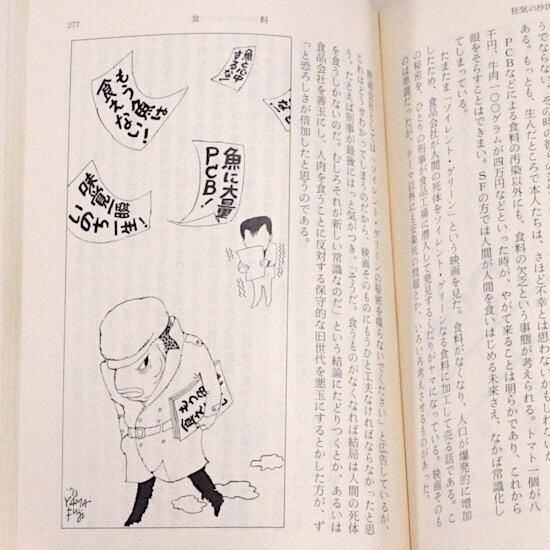 狂気の沙
ある。もっとも、生んだところで本人たちは、さほど不幸とは思わないかもしれない
ＰＣＢなどによる食料の汚染以外にも、食料の欠乏という事態が考えられる。トマト一個が八
千円、牛肉一〇〇グラムが四万円などといった時が、やがて来ることは明らかであり、これから
眼をそらすことはできまい。ＳＦの方では人間が人間を食いはじめる未来さえ、なかば常識化し
てしまっている。
たまたま「ソイレント・グリーン」という映画を見た。食料がなくなり、人口が爆発的に増加
したため、食品会社が人間の死体をソイレント・グリーンなる食料に加工して売る話である。こ
の秘密を、ひとりの刑事が食品工場に潜入して発見するくだりがヤマになっている。映画そのも
のは単調だったが、テーマ以外にも安楽死の問題とか、いろいろ考えさせるものがあった。
277
食　料
映画会社としては「ソイレント・グリーンの秘密を喋らないでください」と広告しているが、
これはどうせわかってしまうのだから、映画そのものにもうひと工夫なければならなかったと思
う。たとえば刑事が最後にはっと気がつき、「そうだ。食うものがなくなれば結局は人間の死体
を食うしかないのだ。むしろそれが新しい常識なのだ」という結論にたどりつくとか、あるいは
食品会社を善玉にし、人肉を食うことに反対する保守的な旧世代を悪玉にするとかした方が、ず
っと恐ろしさが倍加したと思うのである。
魚と心中
するな!
もう魚は
食えない!
魚に大量
PCB!
味覚一瞬
いのち一生!
もう魚
食え
'73
YAMA
FUJI